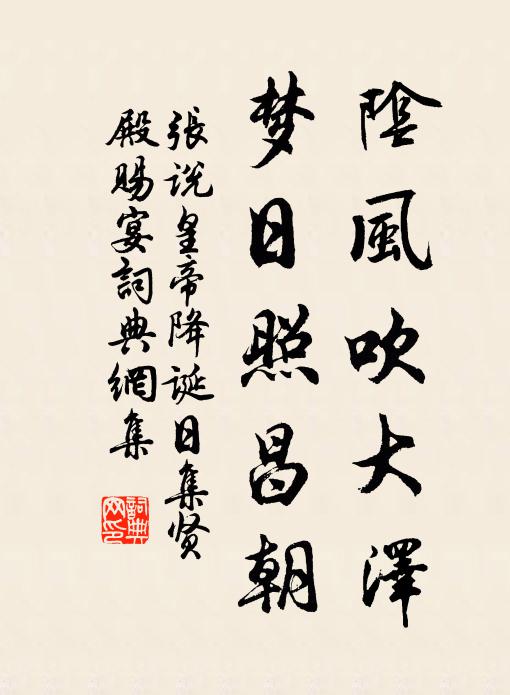 陰風吹大澤
梦日照昌朝
張说皇帝降诞日集贤
殿賜宴詞典網集
詞典
网印